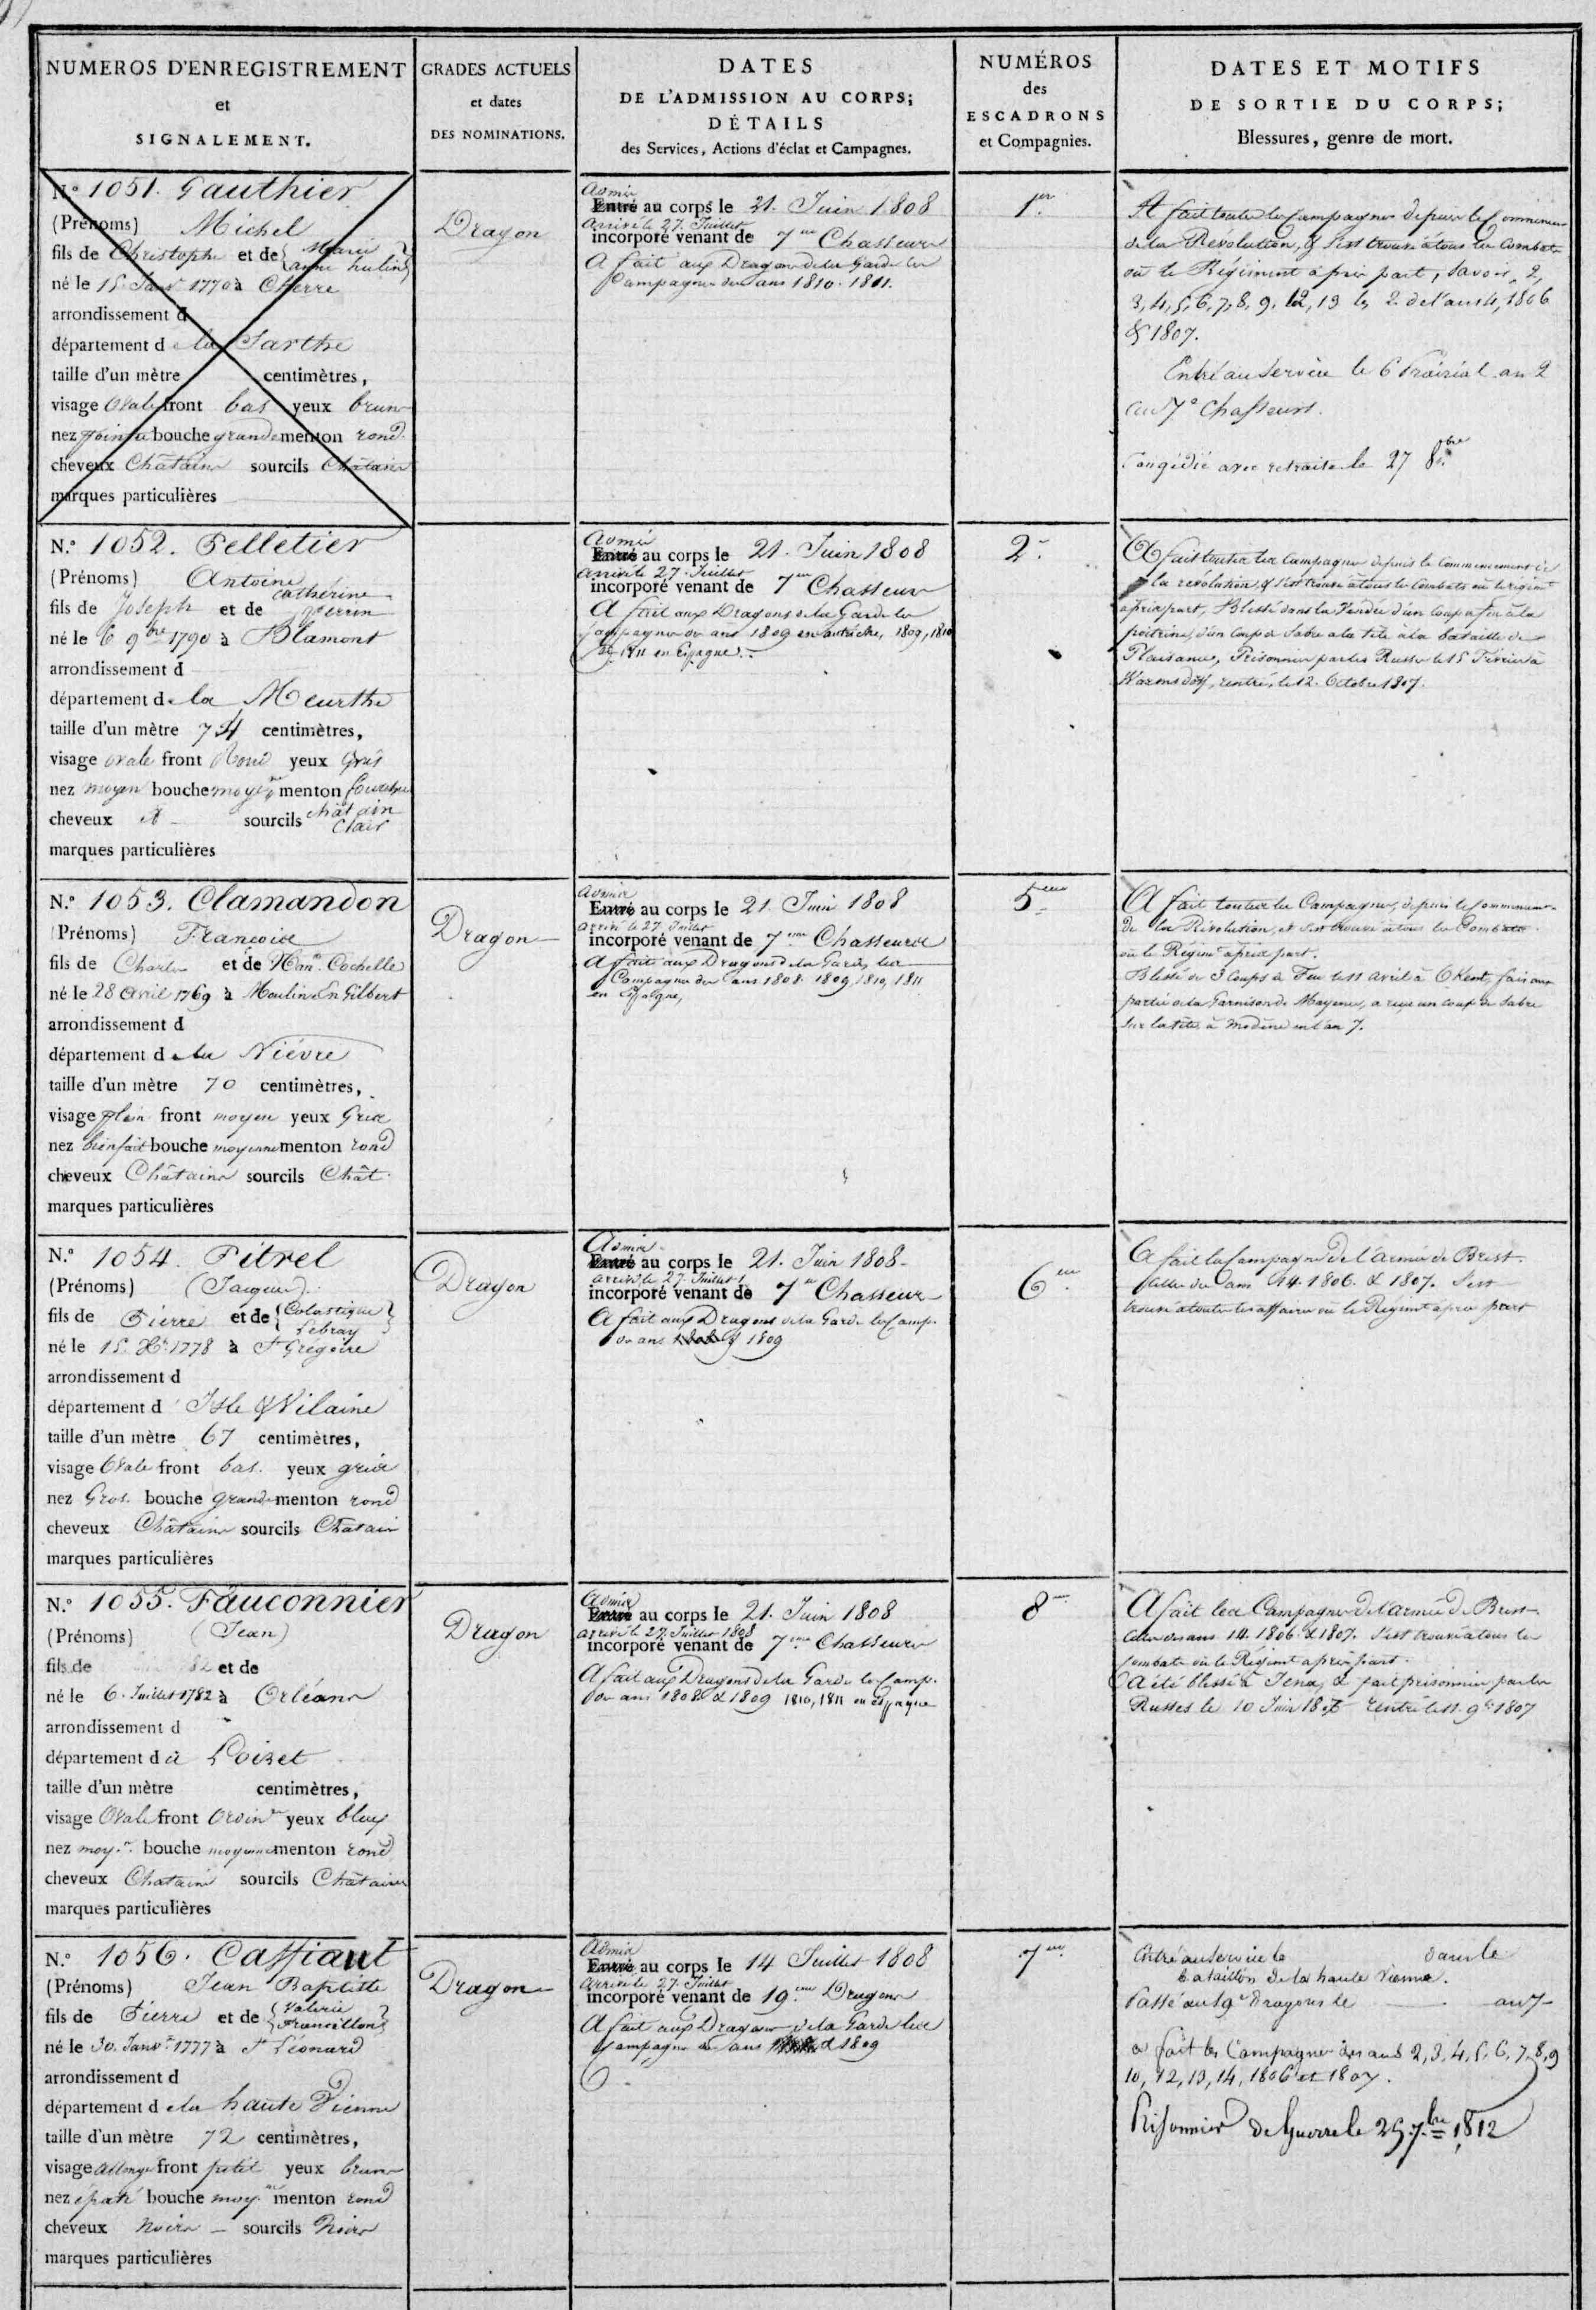 NUMEROS D'ENREGISTREMENT
et
SIGNALEMENT.
GRADES ACTUELS
et dates
DES NOMINATIONS.
DATES
DE L'ADMISSION AU CORPS;
DÉTAILS
des Services, Actions d'éclat et Campagnes.
NUMÉROS
des
ESCADRONS
et Compagnies.
DATES ET MOTIFS
DE SORTIE DU CORPS;
Blessures, genre de mort.
N.° 1051. Gauthier
(Prénoms) Michel
fils de Christophe et de Marie
anne hulin
né le 15 Janv. 1770 à Cherre
arrondissement d
département de la Sarthe
taille d'un mètre centimètres,
visage Ovale front bas yeux bruns
nez pointu bouche grande menton rond
cheveux Châtains sourcils Châtains
marques particulières
Dragon
Admis
Entré au corps le 21. Juin 1808
arrivé le 27. Juillet
incorporé venant de 7me Chasseurs
A fait aux Dragons de la Garde les
Campagnes des ans 1810. 1811.
1er
A fait toutes les Campagnes depuis le Commencemt
de la Révolution, & s'est trouvé à tous les Combats
où le Régiment a pris part, Savoir, 2,
3, 4, 5, 6, 7, 8, 9, 12, 13 & 2. de l'an 14, 1806
& 1807.
Entré au Service le 6 Prairial an 2
au 7e Chasseurs.
Congédié avec retraite le 27 8bre
N.° 1052. Pelletier
(Prénoms) Antoine
fils de Joseph et de Catherine
perrin
né le 6 9bre 1790 à Blamont
arrondissement d
département de la Meurthe
taille d'un mètre 74 centimètres,
visage ovale front Rond yeux Gris
nez moyen bouche moyne menton fourchu
cheveux & sourcils châtain
Clair
marques particulières
Admis
Entré au corps le 21. Juin 1808
arrivé le 27. Juillet
incorporé venant de 7me Chasseurs
A fait aux Dragons de la Garde les
Campagnes des ans 1809 en autriche, 1809, 1810
& 1811 en Espagne.
2e
A fait toutes les Campagnes depuis le Commencement de
la révolution, & s'est trouvé à tous les Combats où le régimt
a pris part, Blessé dans la Vendée d'un coup de feu à la
poitrine, d'un coup de Sabre à la tête à la bataille de
Plaisance, Prisonnier par les Russes le 15 Février à
rentré, le 12. Octobre 1807.
N.° 1053. Clamandon
(Prénoms) Francois
fils de Charles et de Cochelle
né le 28 avril 1769 à Moulins En Gilbert
arrondissement d
département de la Nièvre
taille d'un mètre 70 centimètres,
visage plein front moyen yeux Gris
nez bienfait bouche moyenne menton rond
cheveux Châtains sourcils Chât.
marques particulières
Dragon
Admis
Entré au corps le 21. Juin 1808
arrivé le 27 Juillet
incorporé venant de 7me Chasseurs
A fait aux Dragons de la Garde les
Campagnes des ans 1808. 1809, 1810, 1811
en Espagne,
5eme
A fait toutes les Campagnes, depuis le Commencemt
De la Révolution, et s'est trouvé à tous les Combats
où le Régimt a pris part.
Blessé de 3 Coups de Feu le 11 avril à faisant
partie de la Garnison de Mayence, a reçu un coup de Sabre
Sur la tête, à modène en l'an 7.
N.° 1054. Pitrel
(Prénoms) (Jacques)
fils de Pierre et de Colastique
Lebray
né le 15. Xbre 1778 à St Grégoire
arrondissement d
département d'Isle & Vilaine
taille d'un mètre 67 centimètres,
visage Ovale front bas. yeux gris
nez Gros. bouche grande menton rond
cheveux Châtains sourcils Châtain
marques particulières
Dragon
Admis
Entré au corps le 21. Juin 1808
arrivé le 27 Juillet
incorporé venant de 7e Chasseurs
A fait aux Dragons de la Garde les Camp.
des ans 1808 & 1809
6eme
A fait la Campagne de l'armée de Brest
celles des ans 14. 1806. & 1807. S'est
trouvé à toutes les affaires où le Régimt a pris part
N.° 1055. Fauconnier
(Prénoms) (Jean)
fils de et de
né le 6. Juillet 1782 à Orléans
arrondissement d
département du Loiret
taille d'un mètre centimètres,
visage Ovale front Ordinre yeux bleux
nez moyn bouche moyenne menton rond
cheveux Chatains sourcils Châtains
marques particulières
Dragon
Admis
Entré au corps le 21. Juin 1808
arrivé le 27. Juillet 1808
incorporé venant de 7eme Chasseurs
A fait aux Dragons de la Garde les Camp.
des ans 1808 & 1809 1810, 1811 en espagne
8me
A fait les Campagnes de l'armée de Brest
celles des ans 14. 1806. & 1807. S'est trouvé à tous les
Combats où le Régimt a pris part.
A été blessé à Jena, & fait prisonnier par les
Russes le 10 Juin rentré le 11. 9bre 1807
N.° 1056. Cassiaut
(Prénoms) Jean Baptiste
fils de Pierre et de Valerie
Francillon
né le 30. Janvr 1777 à St Léonard
arrondissement d
département de la haute Vienne
taille d'un mètre 72 centimètres,
visage allongé front petit yeux bruns
nez épaté bouche moyne menton rond
cheveux Noirs sourcils Noirs
marques particulières
Dragon
Admis
Entré au corps le 14 Juillet 1808
arrivé le 27. Juillet
incorporé venant de 19eme Dragons
A fait aux Dragons de la Garde les
Campagnes des ans & 1809
7me
Entré au Service le dans le
bataillon de la haute Vienne.
Passé au 19e Dragons le an 7
a fait les Campagnes des ans 2, 3, 4, 5, 6, 7, 8, 9
10, 12, 13, 14, 1806 et 1807.
Prisonnier de Guerre le 25 7bre 1812